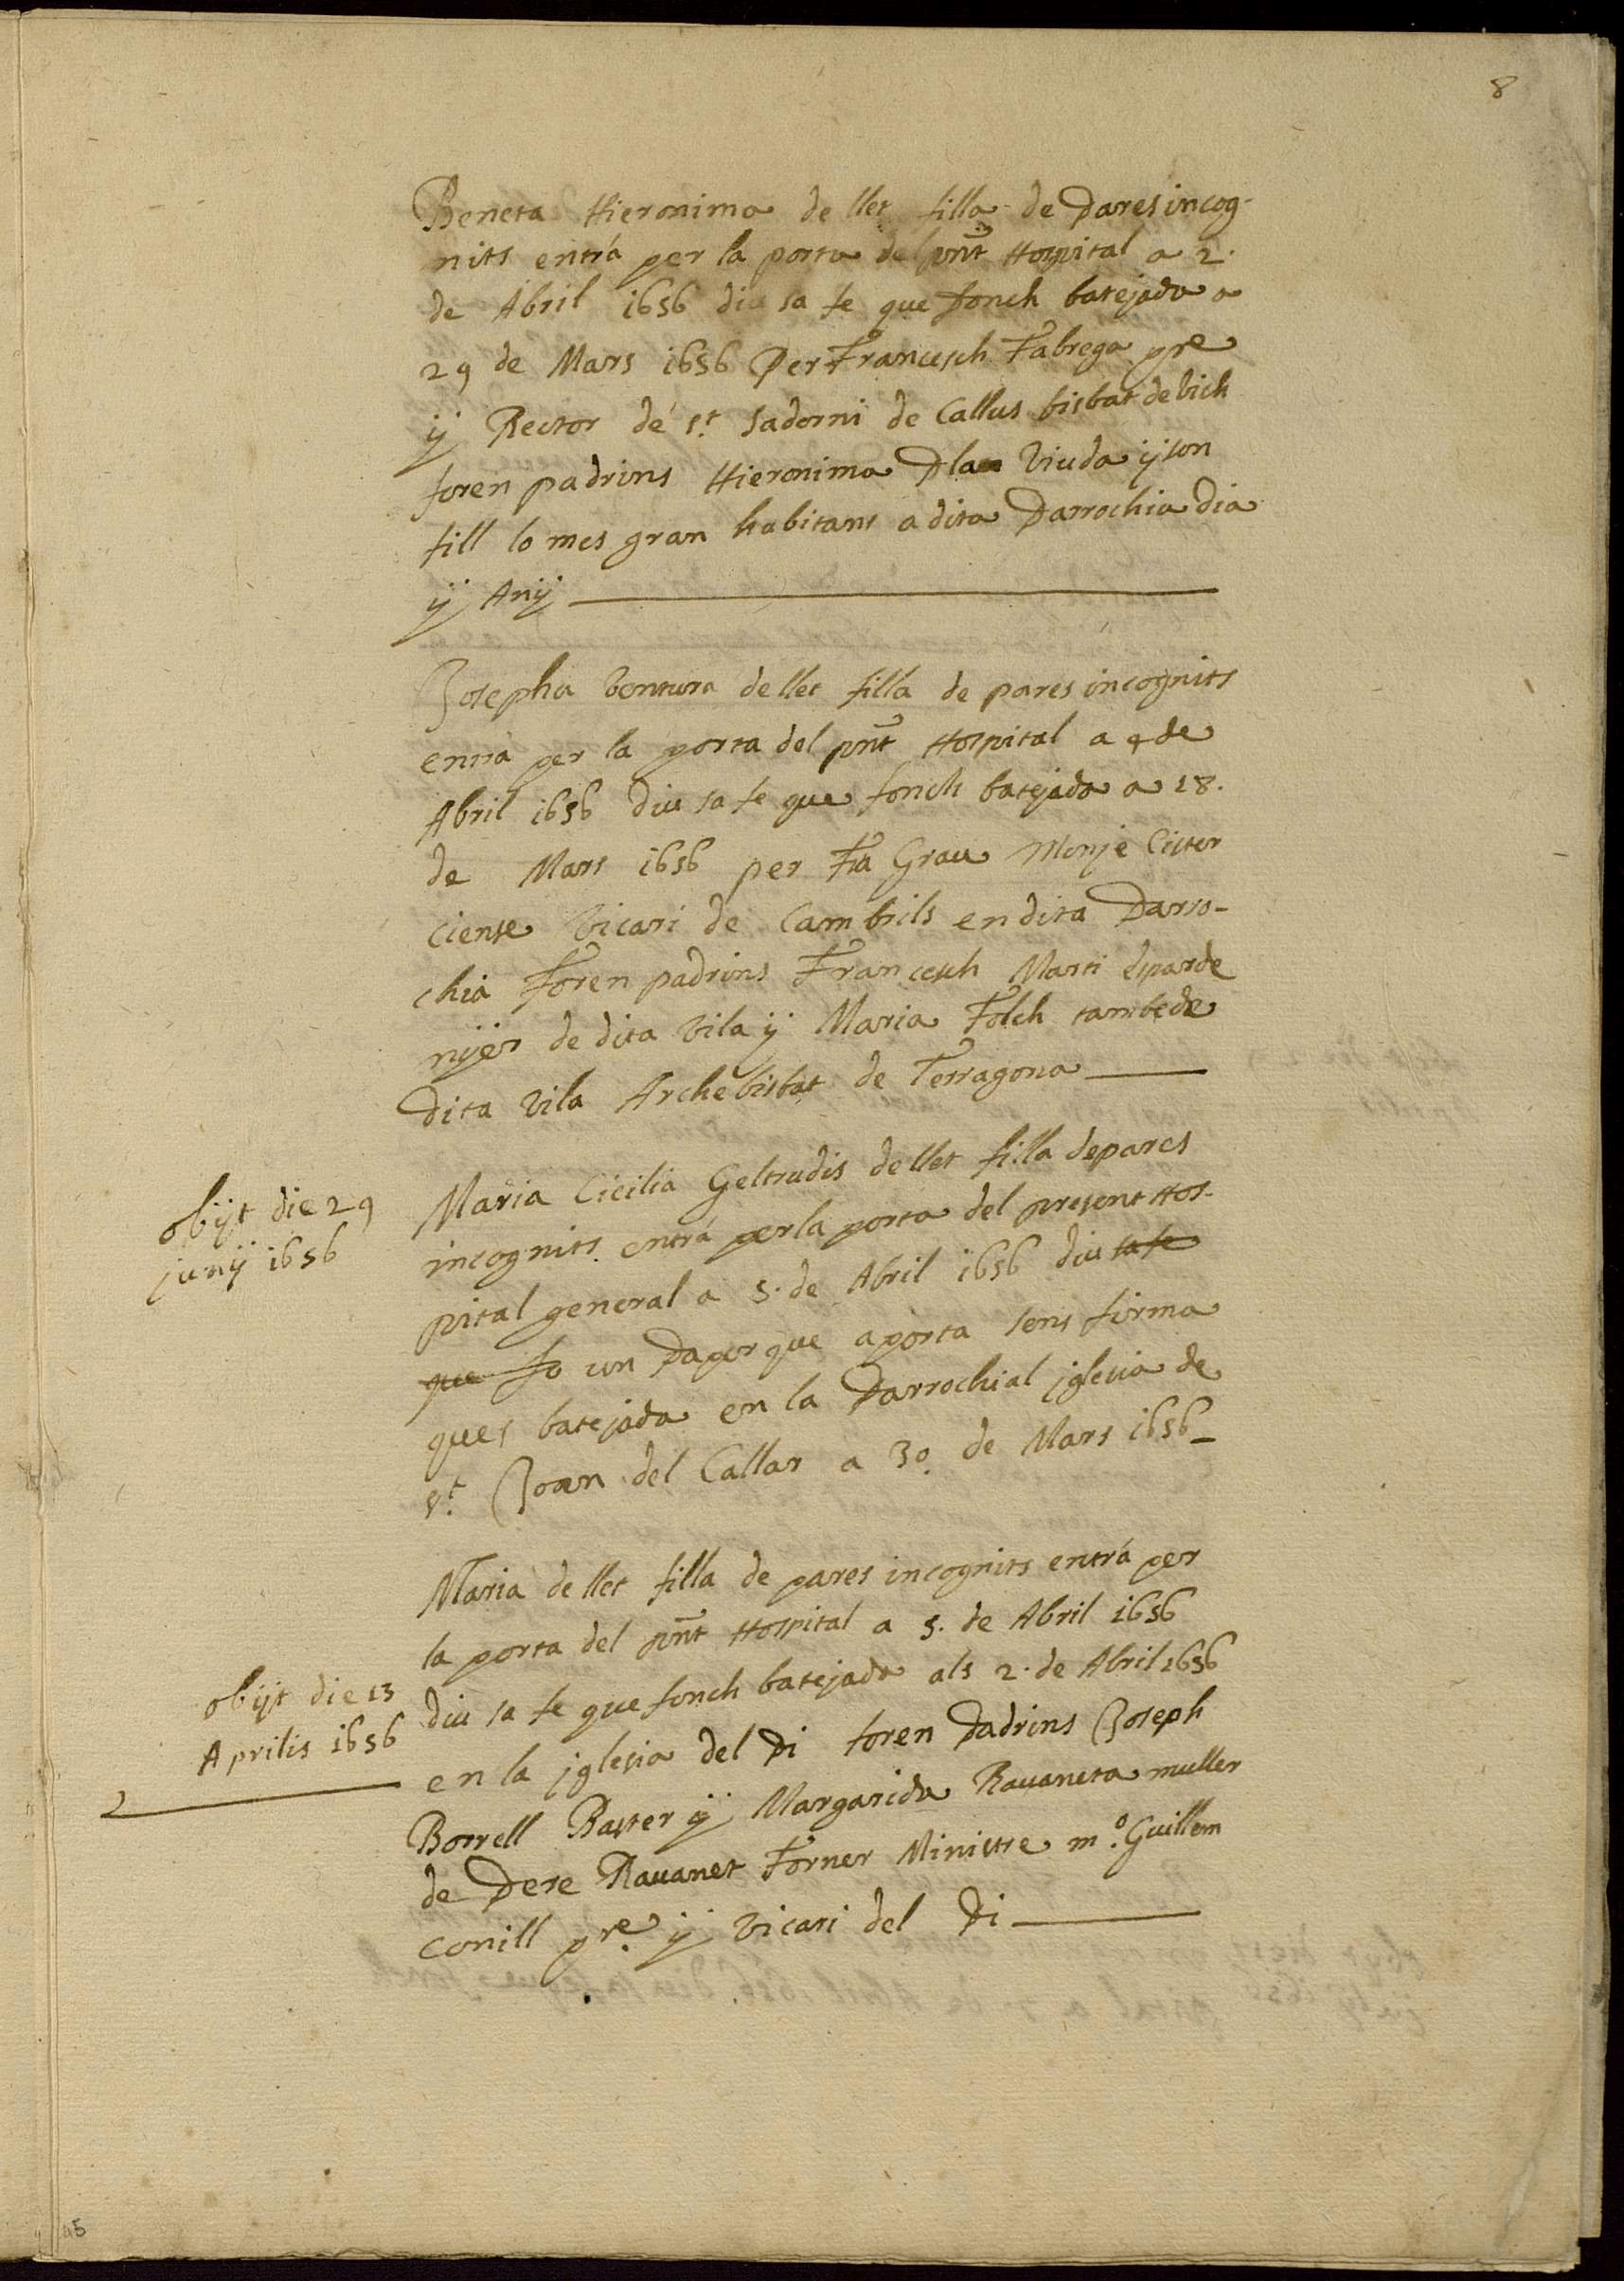 8
Beneta Hieronima de llet filla de Pares incog-
nits entrá per la porta del pnt Hospital a 2.
de Abril 1656 diu sa fe que fonch batejada a
29 de Mars 1656 Per Francesch Fabrega pre
ÿ Rector de st. Sadorni de Callus bisbat de Vich
foren padrins Hieronima Pla Viuda ÿ son
fill lo mes gran habitans a dita Parrochia dia
ÿ Anÿ
Josepha Ventura de llet filla de pares incognits
entrá per la porta del pnt Hospital a 4 de
Abril 1656 diu sa fe que fonch batejada a 18.
de Mars 1656 per Fra Grau Monje Cister
ciense Vicari de Cambrils en dita Parro-
chia foren padrins Francesch Marti esparde
nÿer de dita Vila ÿ Maria Folch tambe de
dita Vila Archebisbat de Terragona
obÿt die 29
junÿ 1656
Maria Cicilia Geltrudis de llet filla de pares
incognits entrá per la porta del present Hos-
pital general a 5. de Abril 1656 diu sa fe
que fo un Paper que aporta sens firma
ques batejada en la Parrochial jglesia de
st. Joan del Callar a 30. de Mars 1656
Maria de llet filla de pares incognits entrá per
la porta del pnt Hospital a 5. de Abril 1656
obÿt die 13
Aprilis 1656
diu sa fe que fonch batejada als 2. de Abril 1656
en la jglesia del Pi foren Padrins Joseph
Borrell Baster ÿ Margarida Rauaneta muller
de Pere Rauanet Forner Ministre mo. Guillem
Conill pre. ÿ Vicari del Pi